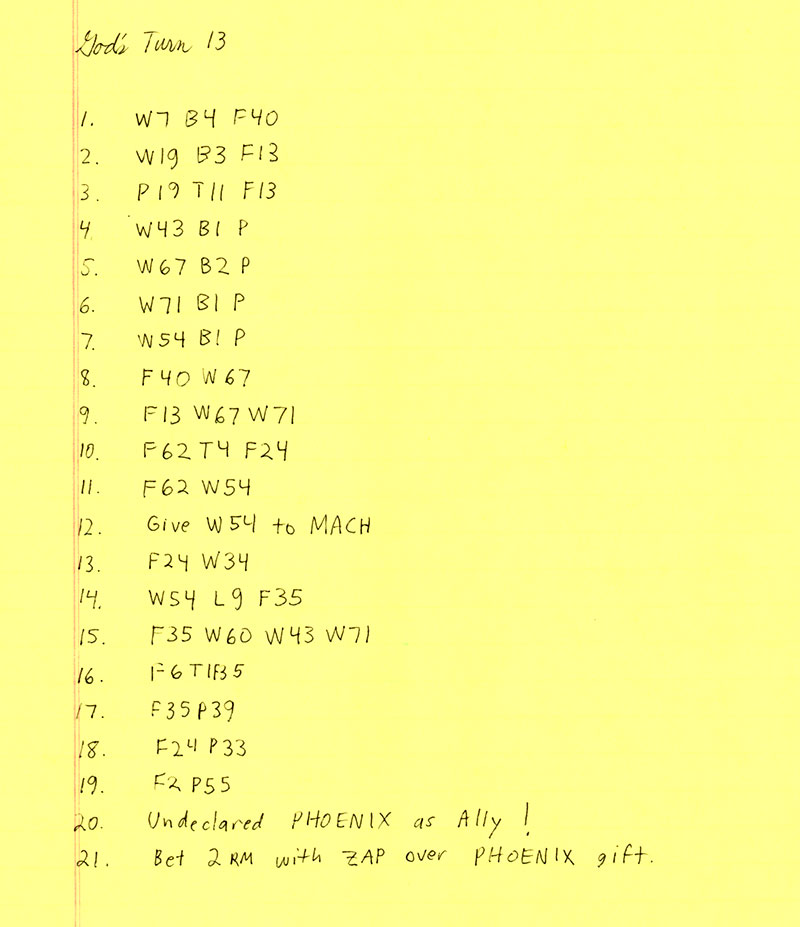 God's Turn 13
1. W7 B4 F40
2. W19 B3 F13
3. P19 T11 F13
4. W43 B1 P
5. W67 B2 P
6. W71 B1 P
7. W54 B1 P
8. F40 W67
9. F13 W67 W71
10. F62 T4 F24
11. F62 W54
12. Give W54 to MACH
13. F24 W34
14. W54 L9 F35
15. F35 W60 W43 W71
16. F6
17. F35 P39
18. F24 P33
19. F2 P55
20. Undeclared PHOENIX as Ally!
21. Bet 2 RM with ZAP over PHOENIX gift.